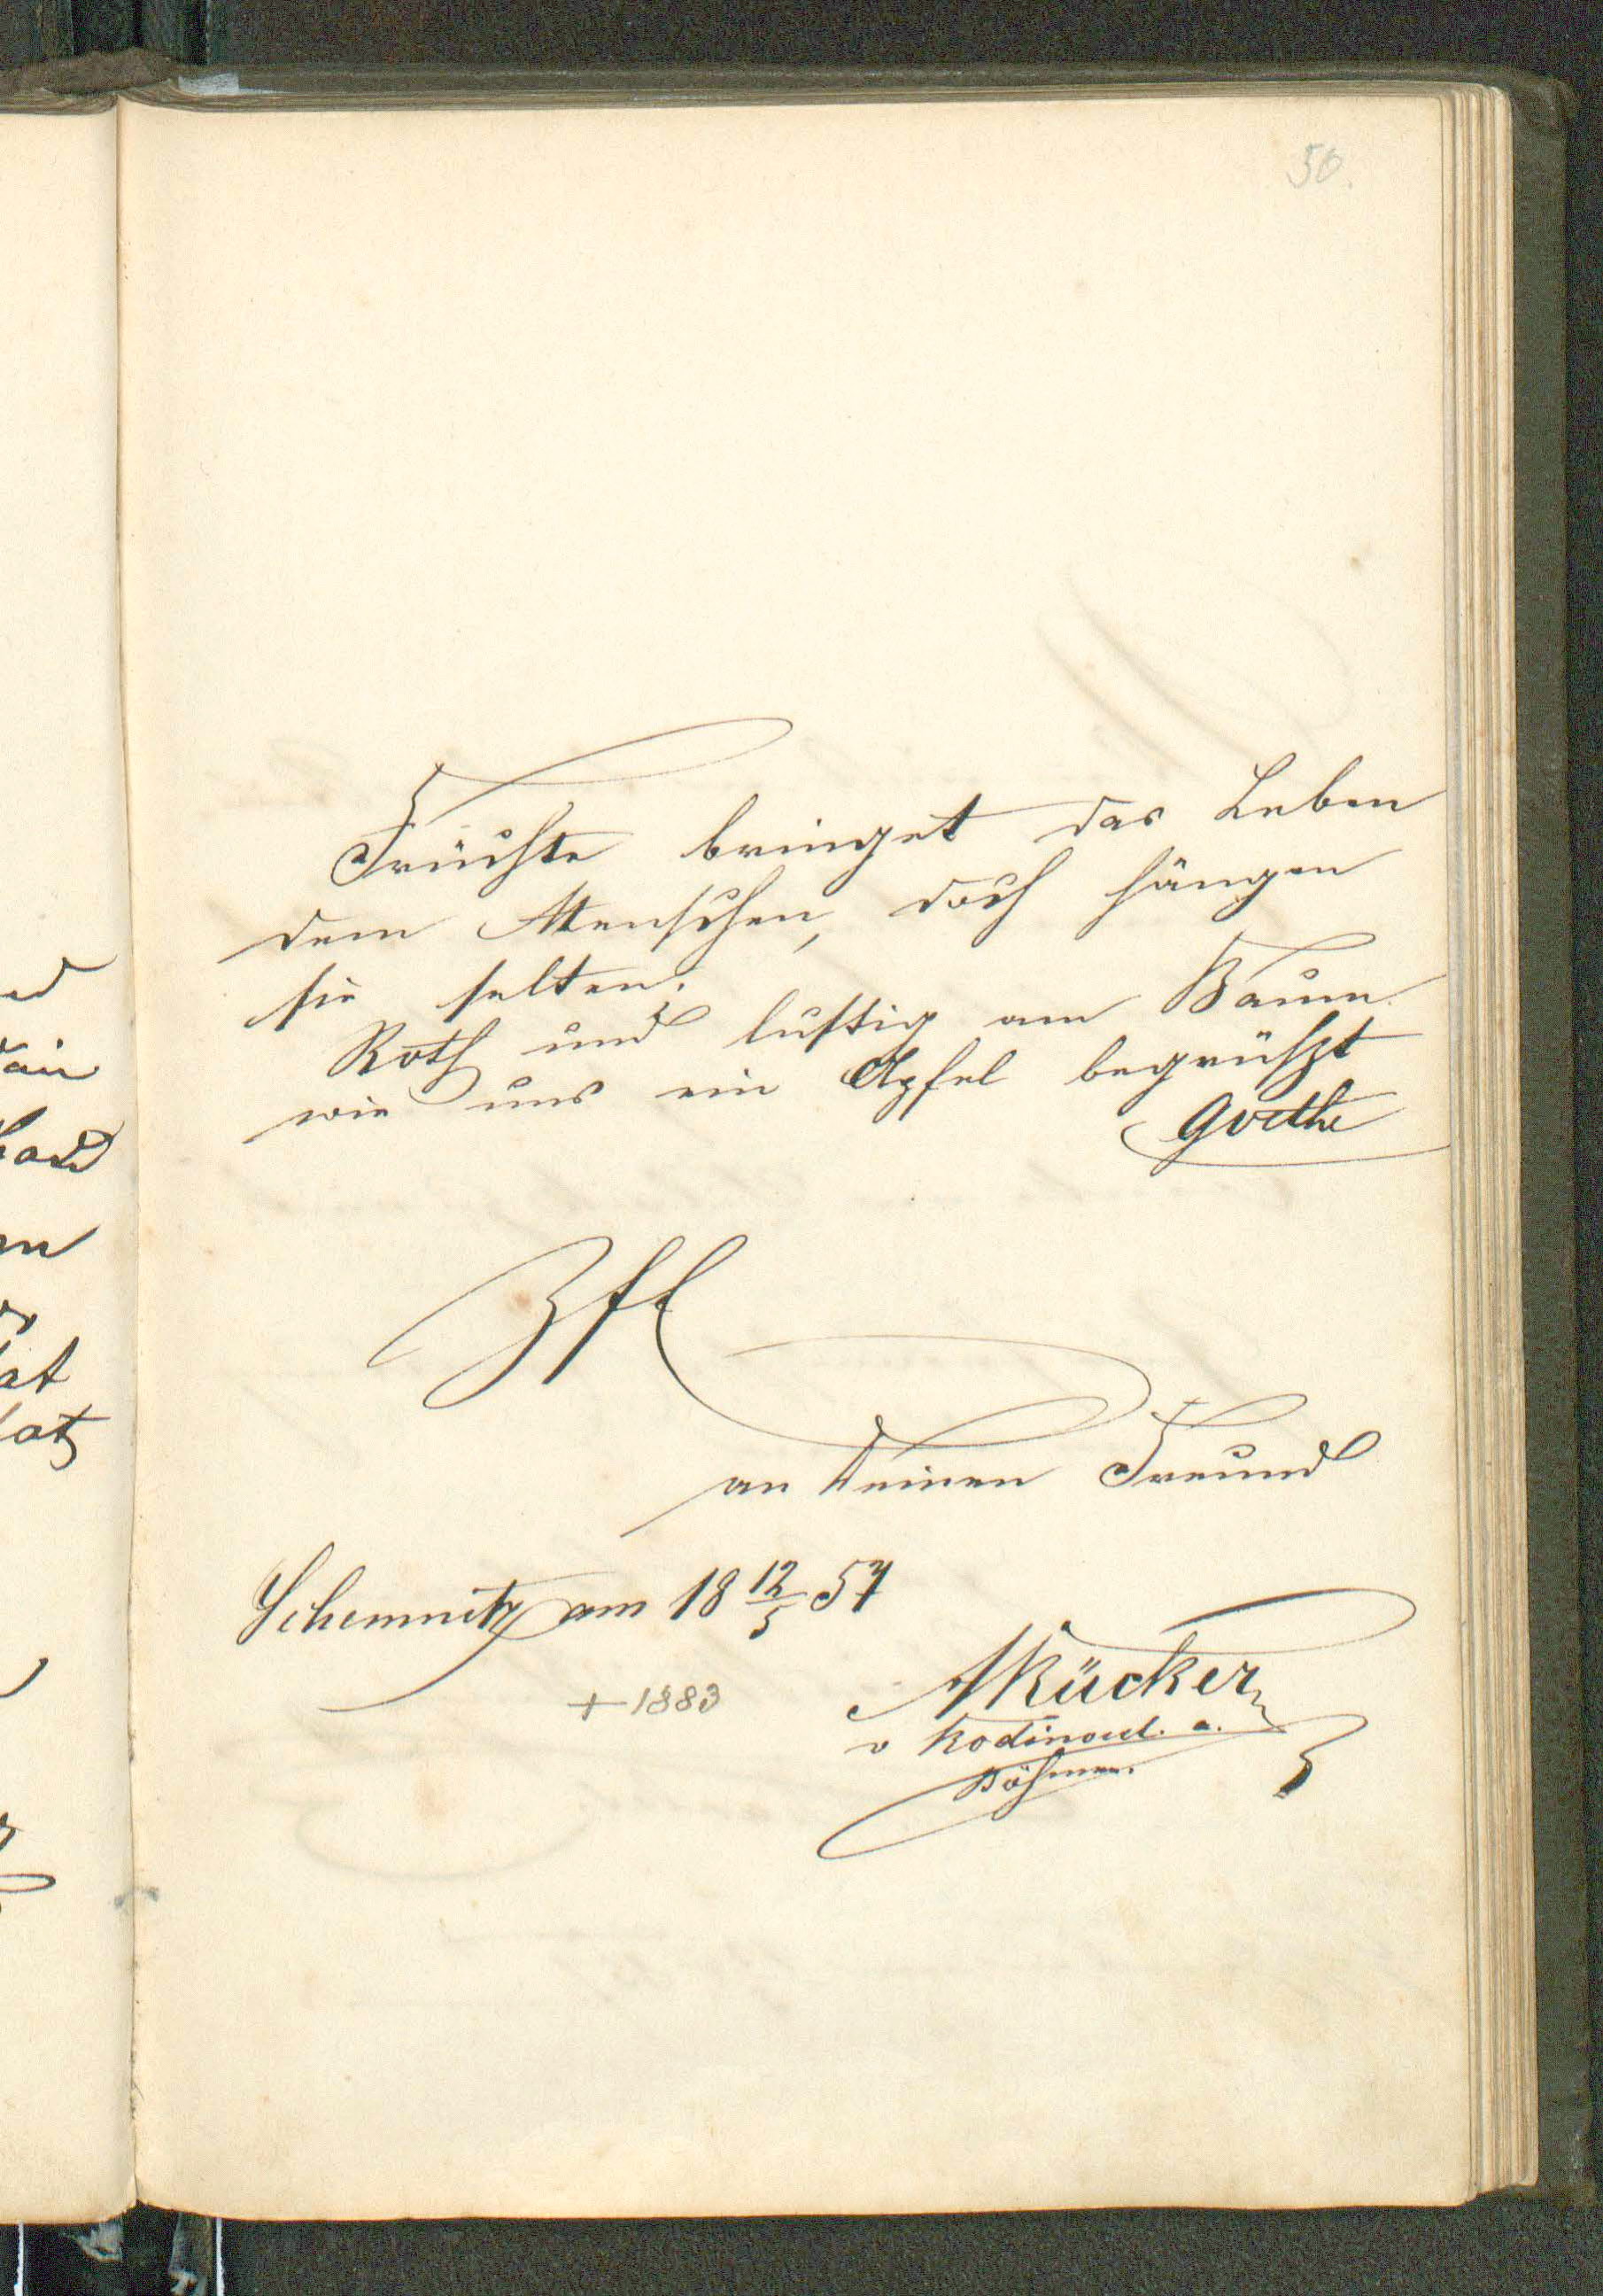 50.
Früchte bringet das Leben
dem Menschen, doch hängen
sie selten.
Roth und lustig am Baum
wie uns ein Apfel begrüßt
Goethe
Zft
an Deinen Freund
Schemnitz am 18 12/5 57
ARücker
+ 1883
v
a.
Böhmen.